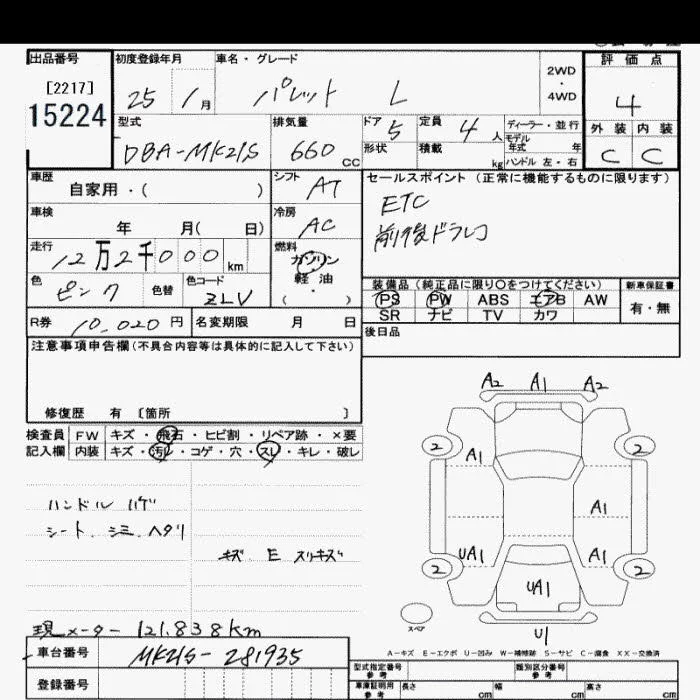 出品番号 初度登録年月 車名・グレード 評価点
[2217]
15224
25 / 1月 パレット L 2WD・4WD 4
型式 排気量 ドア 5 定員 4人 ディーラー・並行 外装 内装
DBA-MK21S 660cc 形状 積載 kg モデル年式 年 C C
ハンドル 左・右
車歴 シフト セールスポイント (正常に機能するものに限ります)
自家用・( ) AT ETC
車検 冷房 前後ドラレコ
年 月( 日) AC
走行 燃料
12万2千000km ガソリン
軽油
・( )
色 色替 色コード 装備品(純正品に限り○をつけてください) 新車保証書
ピンク ZLV PS PW ABS エアB AW 有・無
SR ナビ TV カワ
R券 10,020円 名変期限 月 日 後日品
注意事項申告欄(不具合内容等は具体的に記入して下さい)
修復歴 有 〔箇所 〕
検査員 FW キズ・飛石・ヒビ割・リペア跡・×要
記入欄 内装 キズ・汚レ・コゲ・穴・スレ・キレ・破レ
ハンドル ハゲ
シート、シミ、ヘタリ
キズ E スリキズ
現メーター 121,838km
A2 A1 A2
2 A1 2
A1
2 UA1 A1 2
UA1
スペア U1
A-キズ E-エクボ U-凹み W-補修跡 S-サビ C-腐食 XX-交換済
車台番号 MK21S-281935
登録番号
型式指定番号 参考 類別区分番号 参考
車庫証明用 参考 長さ cm 幅 cm 高さ cm